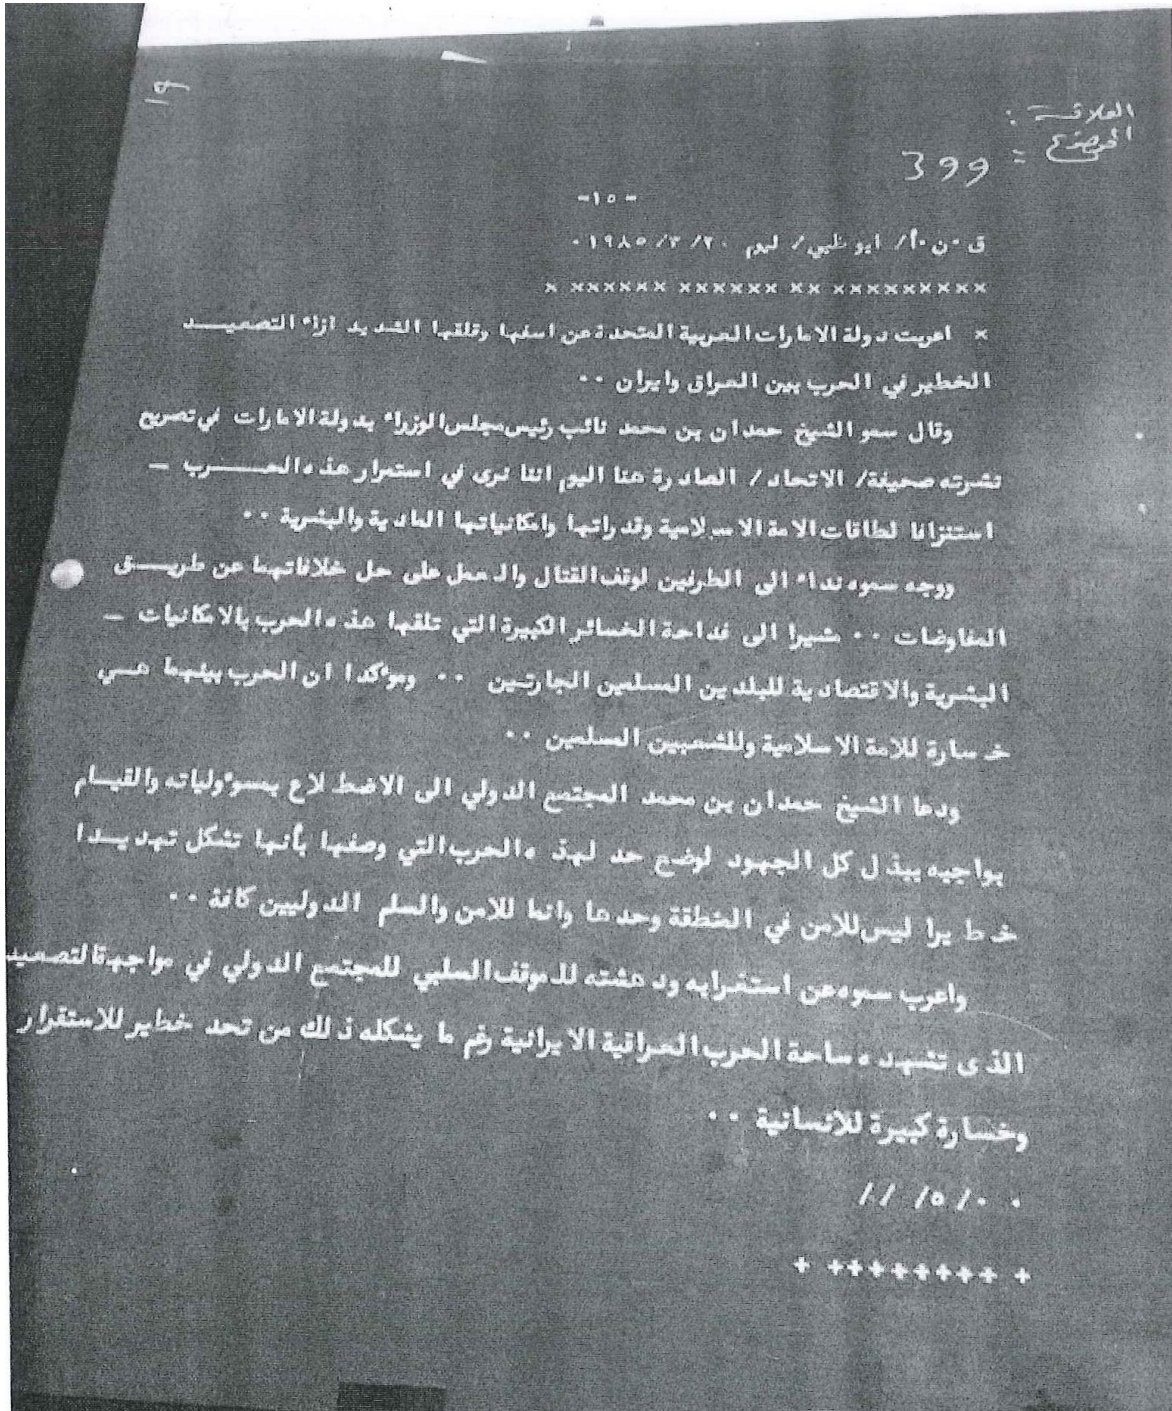 العلاقة :
الموضوع = 399
-١٥-
ق ٠ن ٠أ/ ابو ظبي/ ليوم ٢٠/ ٣/ ١٩٨٥ ٠
× ×××××× ×××××× ×× ×××××××××
× اعربت دولة الامارات العربية المتحدة عن اسفها وقلقها الشديد ازاء التصعيــــد
الخطير في الحرب بين العراق وايران ٠٠
وقال سمو الشيخ حمدان بن محمد نائب رئيس مجلس الوزراء بدولة الامارات في تصريح
نشرته صحيفة/ الاتحاد/ الصادرة هنا اليوم اننا نرى في استمرار هذه الحـــــرب —
استنزافا لطاقات الامة الاسلامية وقدراتها وامكانياتها المادية والبشرية ٠٠
ووجه سموه نداء الى الطرفين لوقف القتال والعمل على حل خلافاتهما عن طريـــق
المفاوضات ٠٠ مشيرا الى فداحة الخسائر الكبيرة التي تلقها هذه الحرب بالامكانيات —
البشرية والاقتصادية للبلدين المسلمين الجارتين ٠٠ ومؤكدا ان الحرب بينهما هـــي
خسارة للامة الاسلامية وللشعبين المسلمين ٠٠
ودعا الشيخ حمدان بن محمد المجتمع الدولي الى الاضطلاع بمسؤولياته والقيـــام
بواجبه ببذل كل الجهود لوضع حد لهذه الحرب التي وصفها بأنها تشكل تهديــدا
خطيرا ليس للامن في المنطقة وحدها وانما للامن والسلم الدوليين كافة ٠٠
واعرب سموه عن استغرابه ودهشته للموقف السلبي للمجتمع الدولي في مواجهة التصعيد
الذى تشهده ساحة الحرب العراقية الايرانية رغم ما يشكله ذلك من تحد خطير للاستقرار
وخسارة كبيرة للانسانية ٠٠
٠ ٠ /٥/ //
+ ++++++++ +